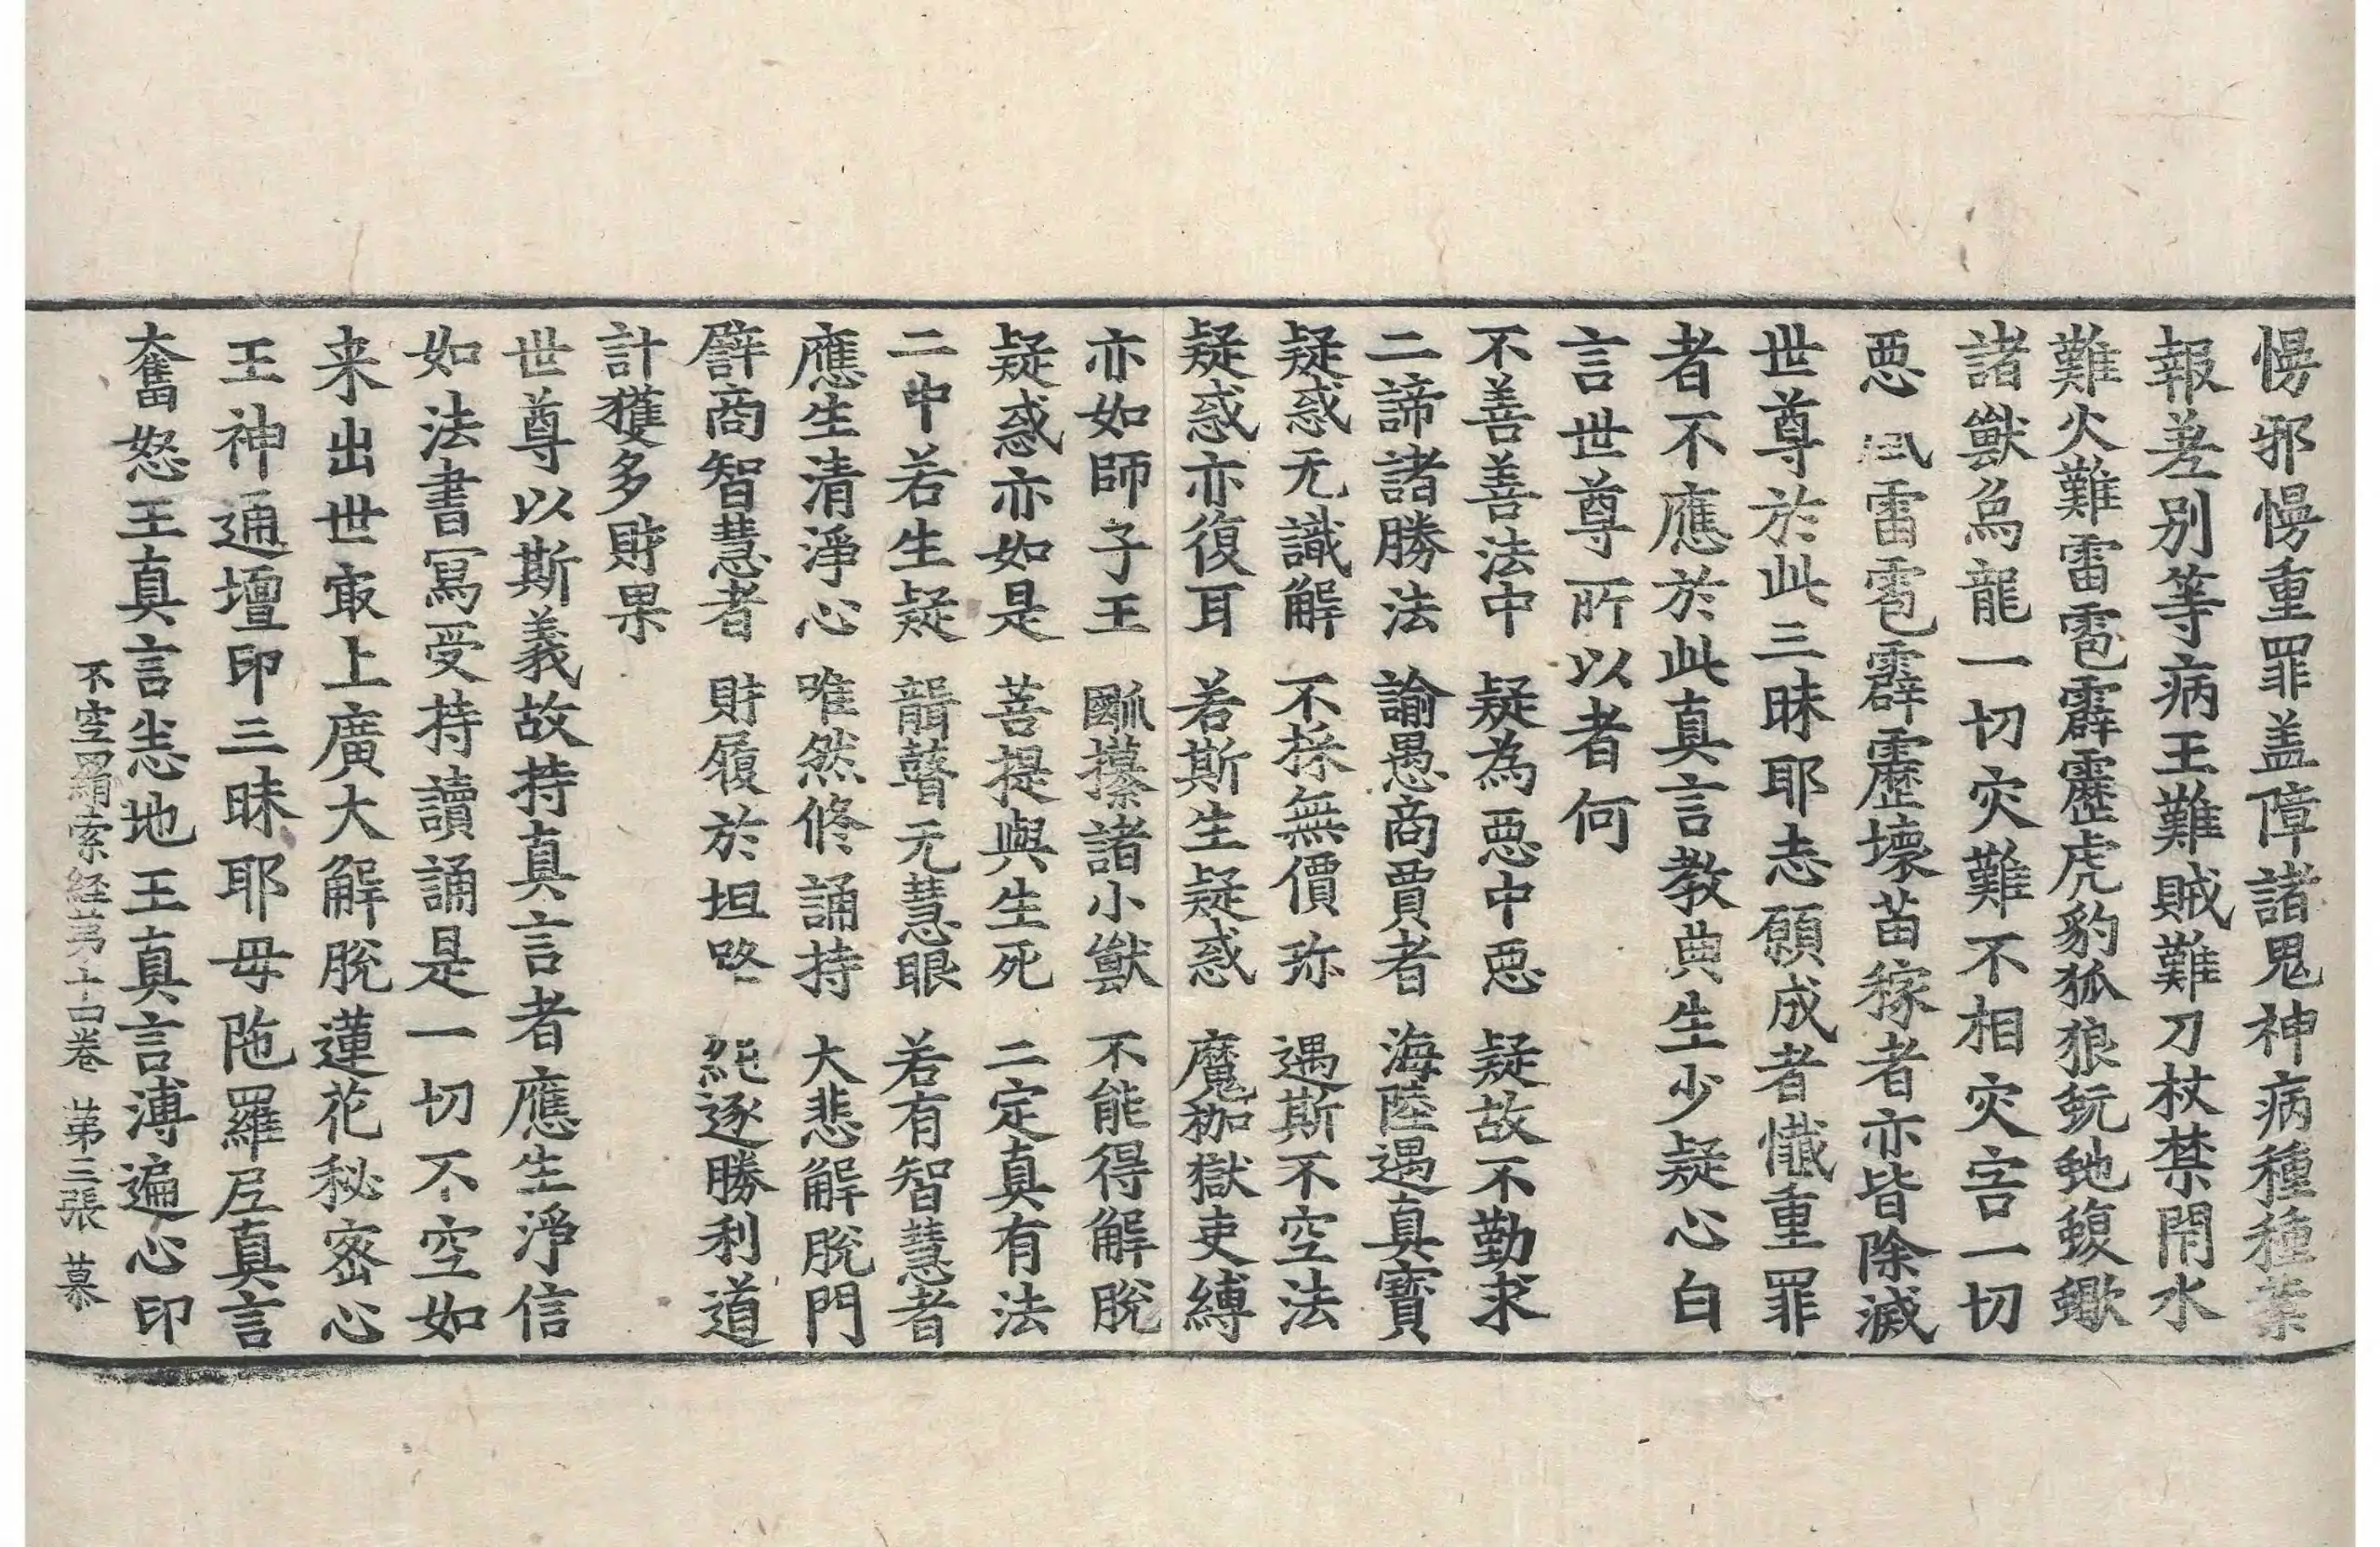 慢邪慢重罪盖障諸鬼神病種種業
報差別等病王難賊難刀杖禁閇水
難火難雷雹霹靂虎豹狐狼蚖虵蝮蠍
諸獸鳥龍一切灾難不相灾害一切
惡風雷雹霹靂壞苗稼者亦皆除滅
世尊於此三昧耶志願成者懺重罪
者不應於此真言教典生少疑心白
言世尊所以者何
不善善法中　疑為惡中惡　疑故不勤求
二諦諸勝法　諭愚商賈者　海陸遇真寶
疑惑无識解　不採無價珎　遇斯不空法
疑惑亦復耳　若斯生疑惑　魔枷獄吏縛
亦如師子王　㘖攥諸小獸　不能得解脫
疑惑亦如是　菩提與生死　二定真有法
二中若生疑　瞽无慧眼　若有智慧者
應生清淨心　唯然修誦持　大悲解脫門
譬商智慧者　財履於坦路　純逐勝利道
計獲多財果
世尊以斯義故持真言者應生淨信
如法書寫受持讀誦是一切不空如
来出世㝡上廣大解脫蓮花秘密心
王神通壇印三昧耶母陁羅尼真言
奮怒王真言恙地王真言溥遍心印
不空羂索経苐十四卷　苐三張　慕